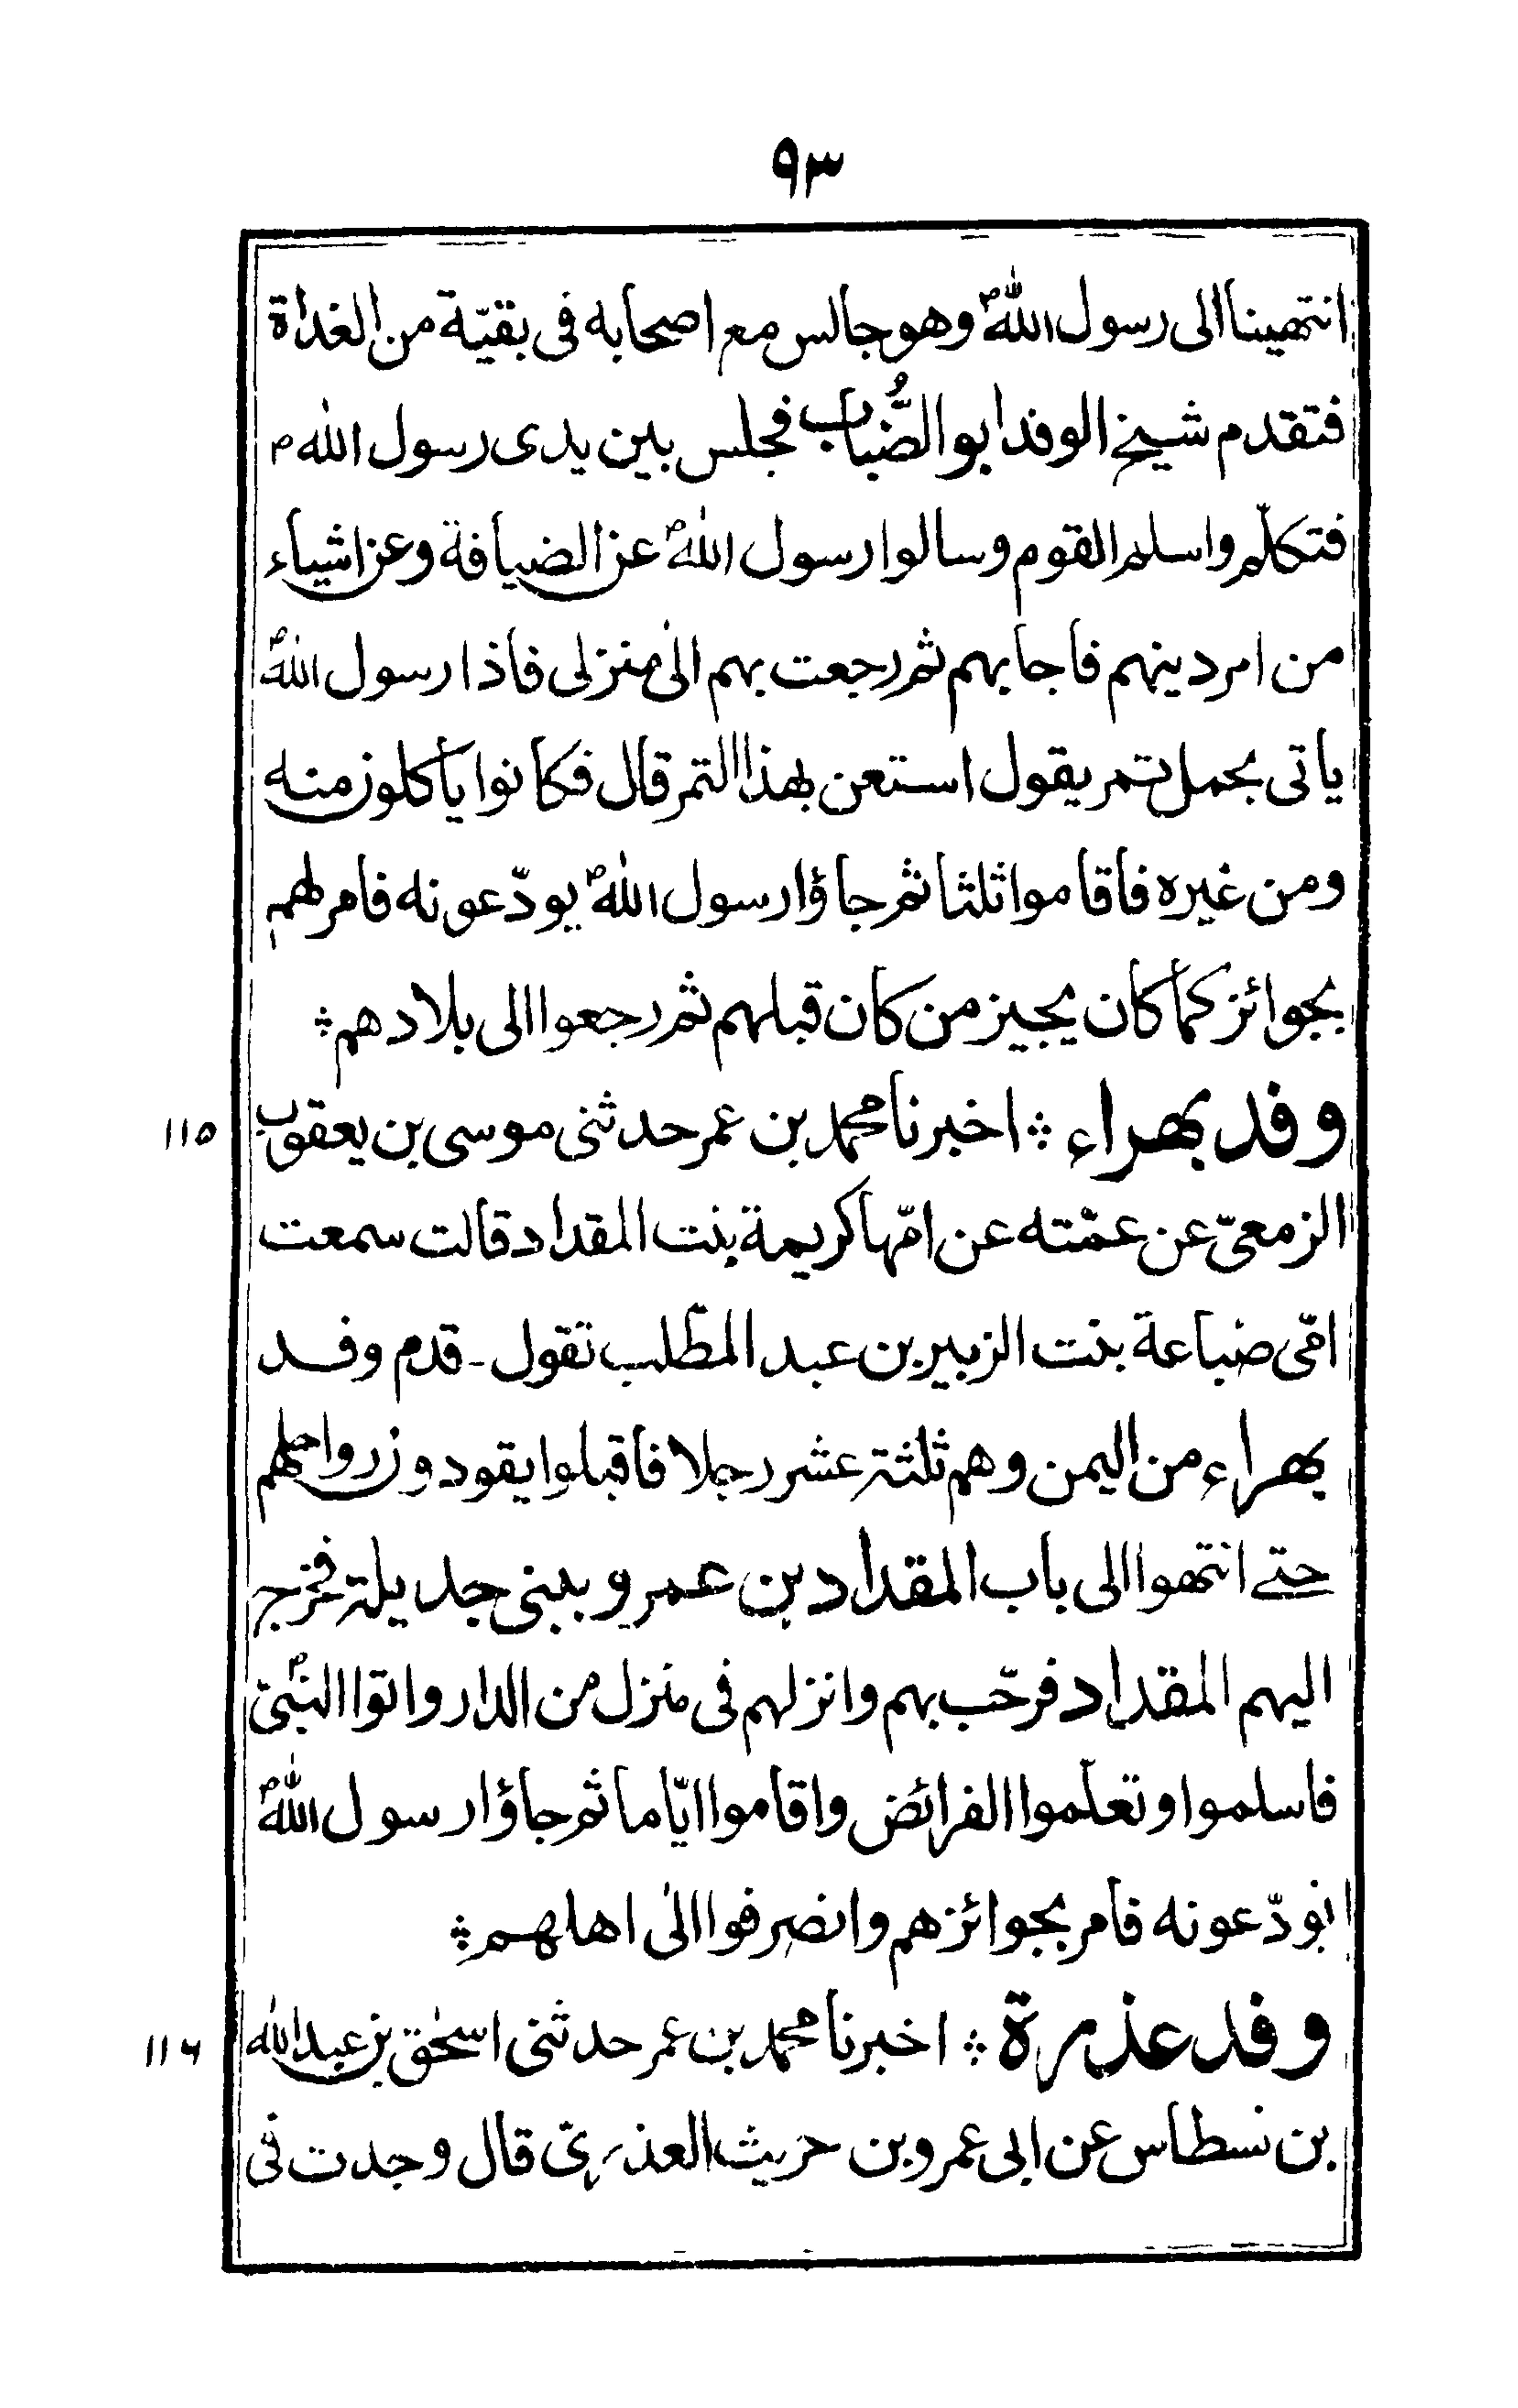 ٩٣
انتهينا الى رسول اللهؐ وهو جالس مع اصحابه فى بقيّة من الغداة
فتقدم شيخ الوفد ابو الضُّباب فجلس بين يدى رسول الله ص
فتكلّم واسلم القوم وسالوا رسول اللهؐ عن الضيافة وعن اشياء
من امر دينهم فاجابهم ثم رجعت بهم الىٰ منزلى فاذا رسول اللهؐ
ياتى بحمل تمر يقول استعن بهذا التمر قال فكانوا ياكلون منه
ومن غيره فاقاموا ثلثا ثم جاؤا رسول اللهؐ يودّعونه فامر لهم
بجوائز كما كان يجيز من كان قبلهم ثم رجعوا الى بلادهم ؞
وفد بهراء ؞ اخبرنا محمد بن عمر حدثنى موسى بن يعقوب ١١٥
الزمعىّ عن عمّته عن امّها كريمة بنت المقداد قالت سمعت
امّى ضباعة بنت الزبير بن عبد المطّلب تقول ـ قدم وفد
بهراء من اليمن وهم ثلثة عشر رجلا فاقبلوا يقودون رواحلهم
حتے انتهوا الى باب المقداد بن عمرو ببنى جديلة فخرج
اليهم المقداد فرحّب بهم وانزلهم فى منزل من الدار واتوا النبىؐ
فاسلموا وتعلّموا الفرائض واقاموا ايّاما ثم جاؤا رسول اللهؐ
يودّعونه فامر بجوائزهم وانصرفوا الىٰ اهلهم ؞
وفد عذرة ؞ اخبرنا محمد بن عمر حدثنى اسحٰق بن عبد الله ١١٦
بن نسطاس عن ابى عمرو بن حريث العذرىّ قال وجدت فى